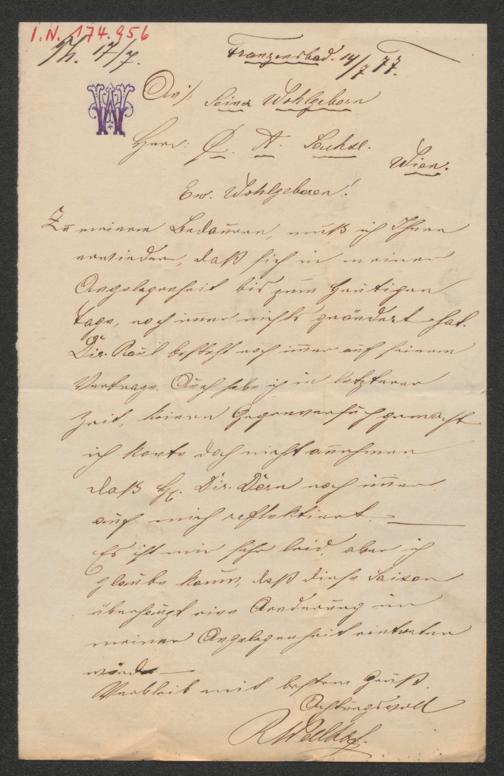 I.N. 174.956
Franzensbad. 14/7 77.
17/7.
W
An
Seine Wohlgeboren
Herr: A.
Wien.
Ew. Wohlgeboren!
Zu meinem Bedauern, muß ich Ihnen
erwiedern, daß sich in meiner
Angelegenheit bis zum heutigen
Tage, noch immer nichts geändert hat.
Dir. Raul besteht noch immer auf seinem
Vertrage. Auch habe ich in letzterer
Zeit, keinen gemacht
ich konte doch nicht annehmen
daß H. Dir. noch immer
auf mich reflektiert. —
Es ist mir sehr leid, aber ich
glaube kaum, daß diese Saison
überhaupt eine Aenderung in
meiner Angelegenheit eintreten
würde —
Verbleib mit bestem Gruß.
Achtungsvoll